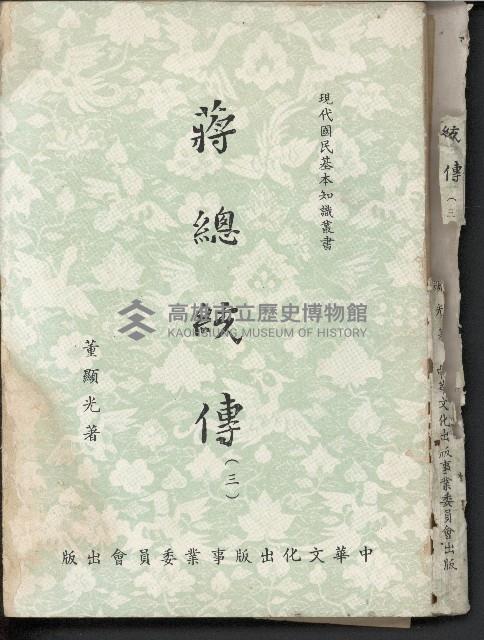 現代國民基本知識叢書
蔣總統傳(三)
董顯光著
中華文化出版事業委員會出版
高雄市立歷史博物館
KAOHSIUNG MUSEUM OF HISTORY
統傳(三
顯光著 中華文化出版事業委員會出版